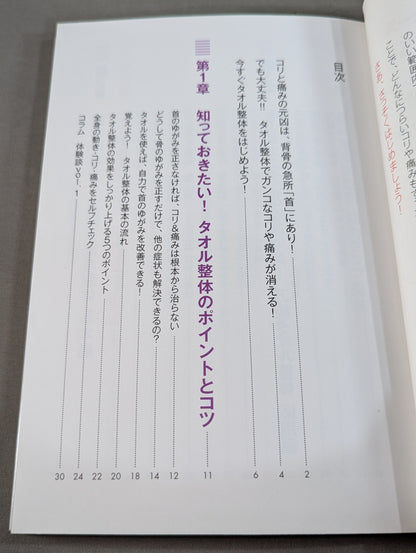 のいい範囲
ことで、どんなにつらいコリや痛みも
さあ、さっそくはじめましょう！
目次
コリと痛みの元凶は、背骨の急所「首」にあり！ 2
でも大丈夫!! タオル整体でガンコなコリや痛みが消える！ 4
今すぐタオル整体をはじめよう！ 6
第1章 知っておきたい！ タオル整体のポイントとコツ 11
首のゆがみを正さなければ、コリ&痛みは根本から治らない 12
どうして骨のゆがみを正すだけで、他の症状も解決できるの？ 14
タオルを使えば、自力で首のゆがみを改善できる！ 18
覚えよう！ タオル整体の基本の流れ 20
タオル整体の効果をしっかり上げる5つのポイント 22
全身の動き・コリ・痛みをセルフチェック 24
コラム 体験談vol.1 30